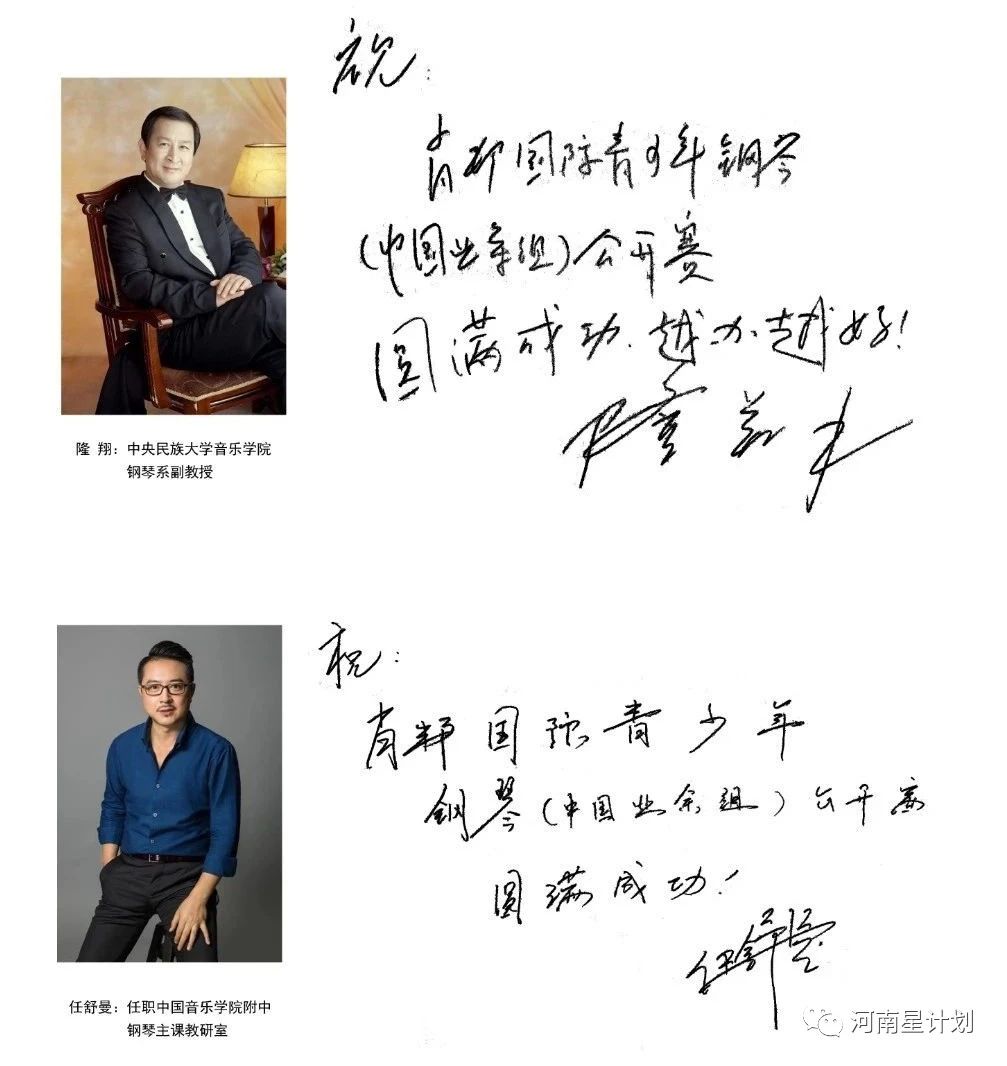 祝:
肖邦国际青少年钢琴
(中国业余组)公开赛
圆满成功.越办越好!
隆翔
隆 翔:中央民族大学音乐学院
钢琴系副教授
祝:
肖邦国际青少年
钢琴(中国业余组)公开赛
圆满成功!
任舒曼
任舒曼:任职中国音乐学院附中
钢琴主课教研室
河南星计划